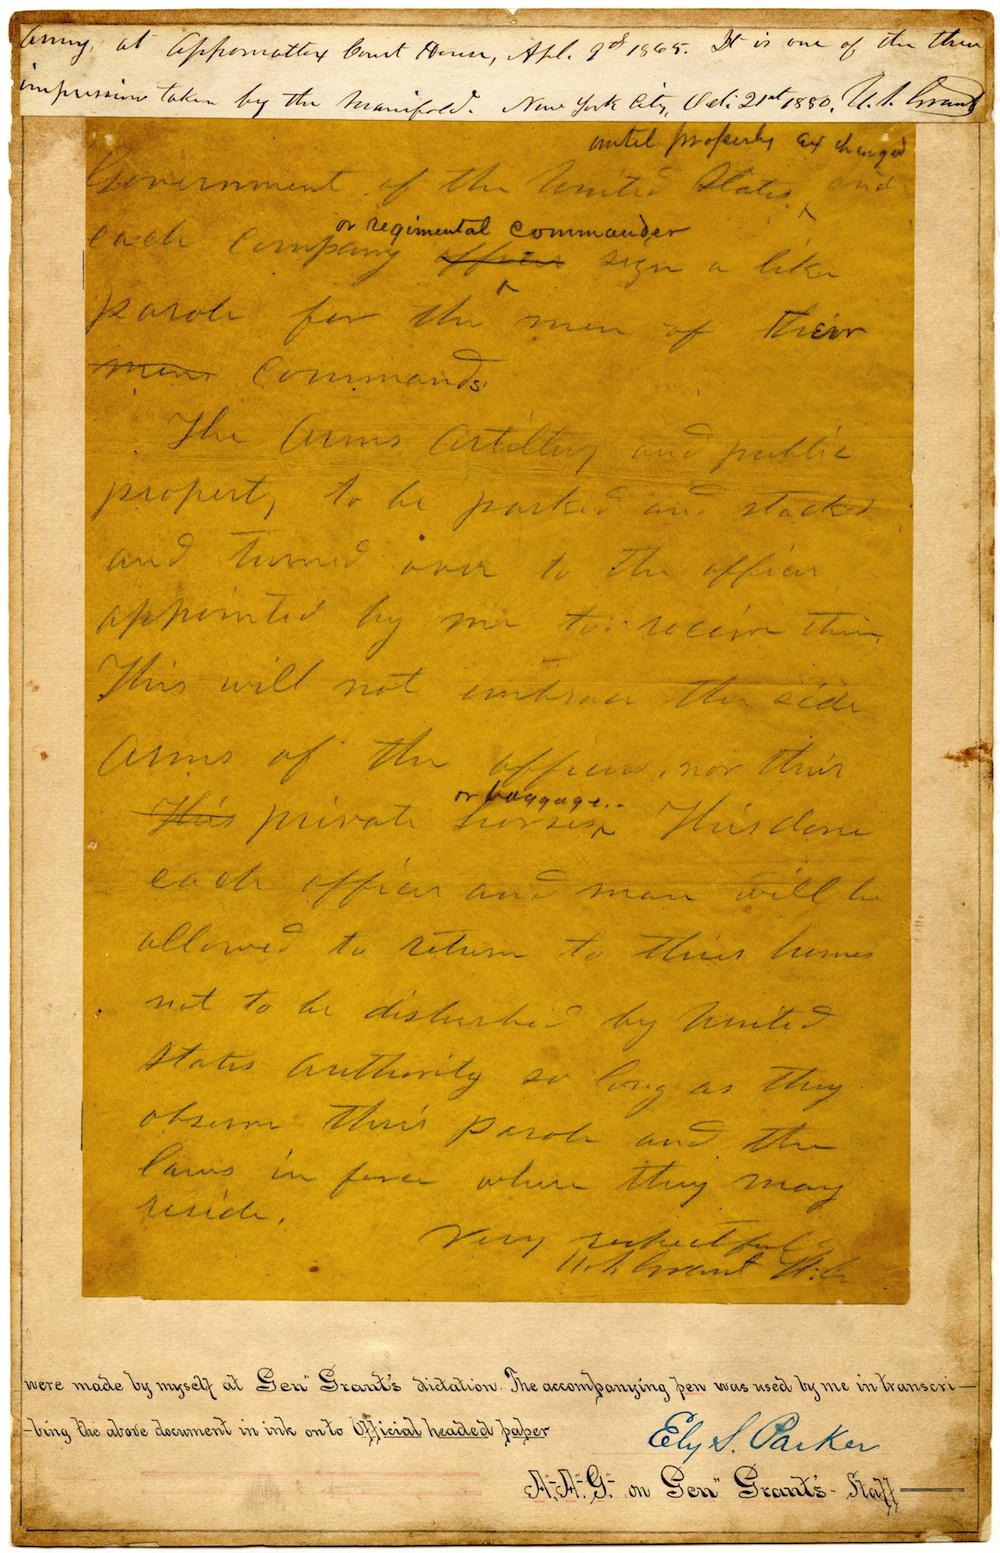 Army, at Appomattox Court House, Apl. 9th 1865. It is one of the three
impressions taken by the Manifold. New York City, Oct. 21st 1880. U. S. Grant
until properly exchanged
Government of the United States and
or regimental commander
each company officer sign a like
parole for the men of their
men commands.
The Arms Artillery and public
property to be parked and stacked
and turned over to the officer
appointed by me to receive them
This will not embrace the side
Arms of the officers, nor their
or baggage.
This private horses This done
each officer and man will be
allowed to return to their homes
not to be disturbed by United
States Authority so long as they
observe their parole and the
laws in force where they may
reside.
Very respectfully
U. S. Grant Lt. Gn
were made by myself at Genl Grant's dictation. The accompanying pen was used by me in transcri-
-bing the above document in ink onto Official headed paper
Ely S. Parker
A.A.G. on Genl Grant's Staff